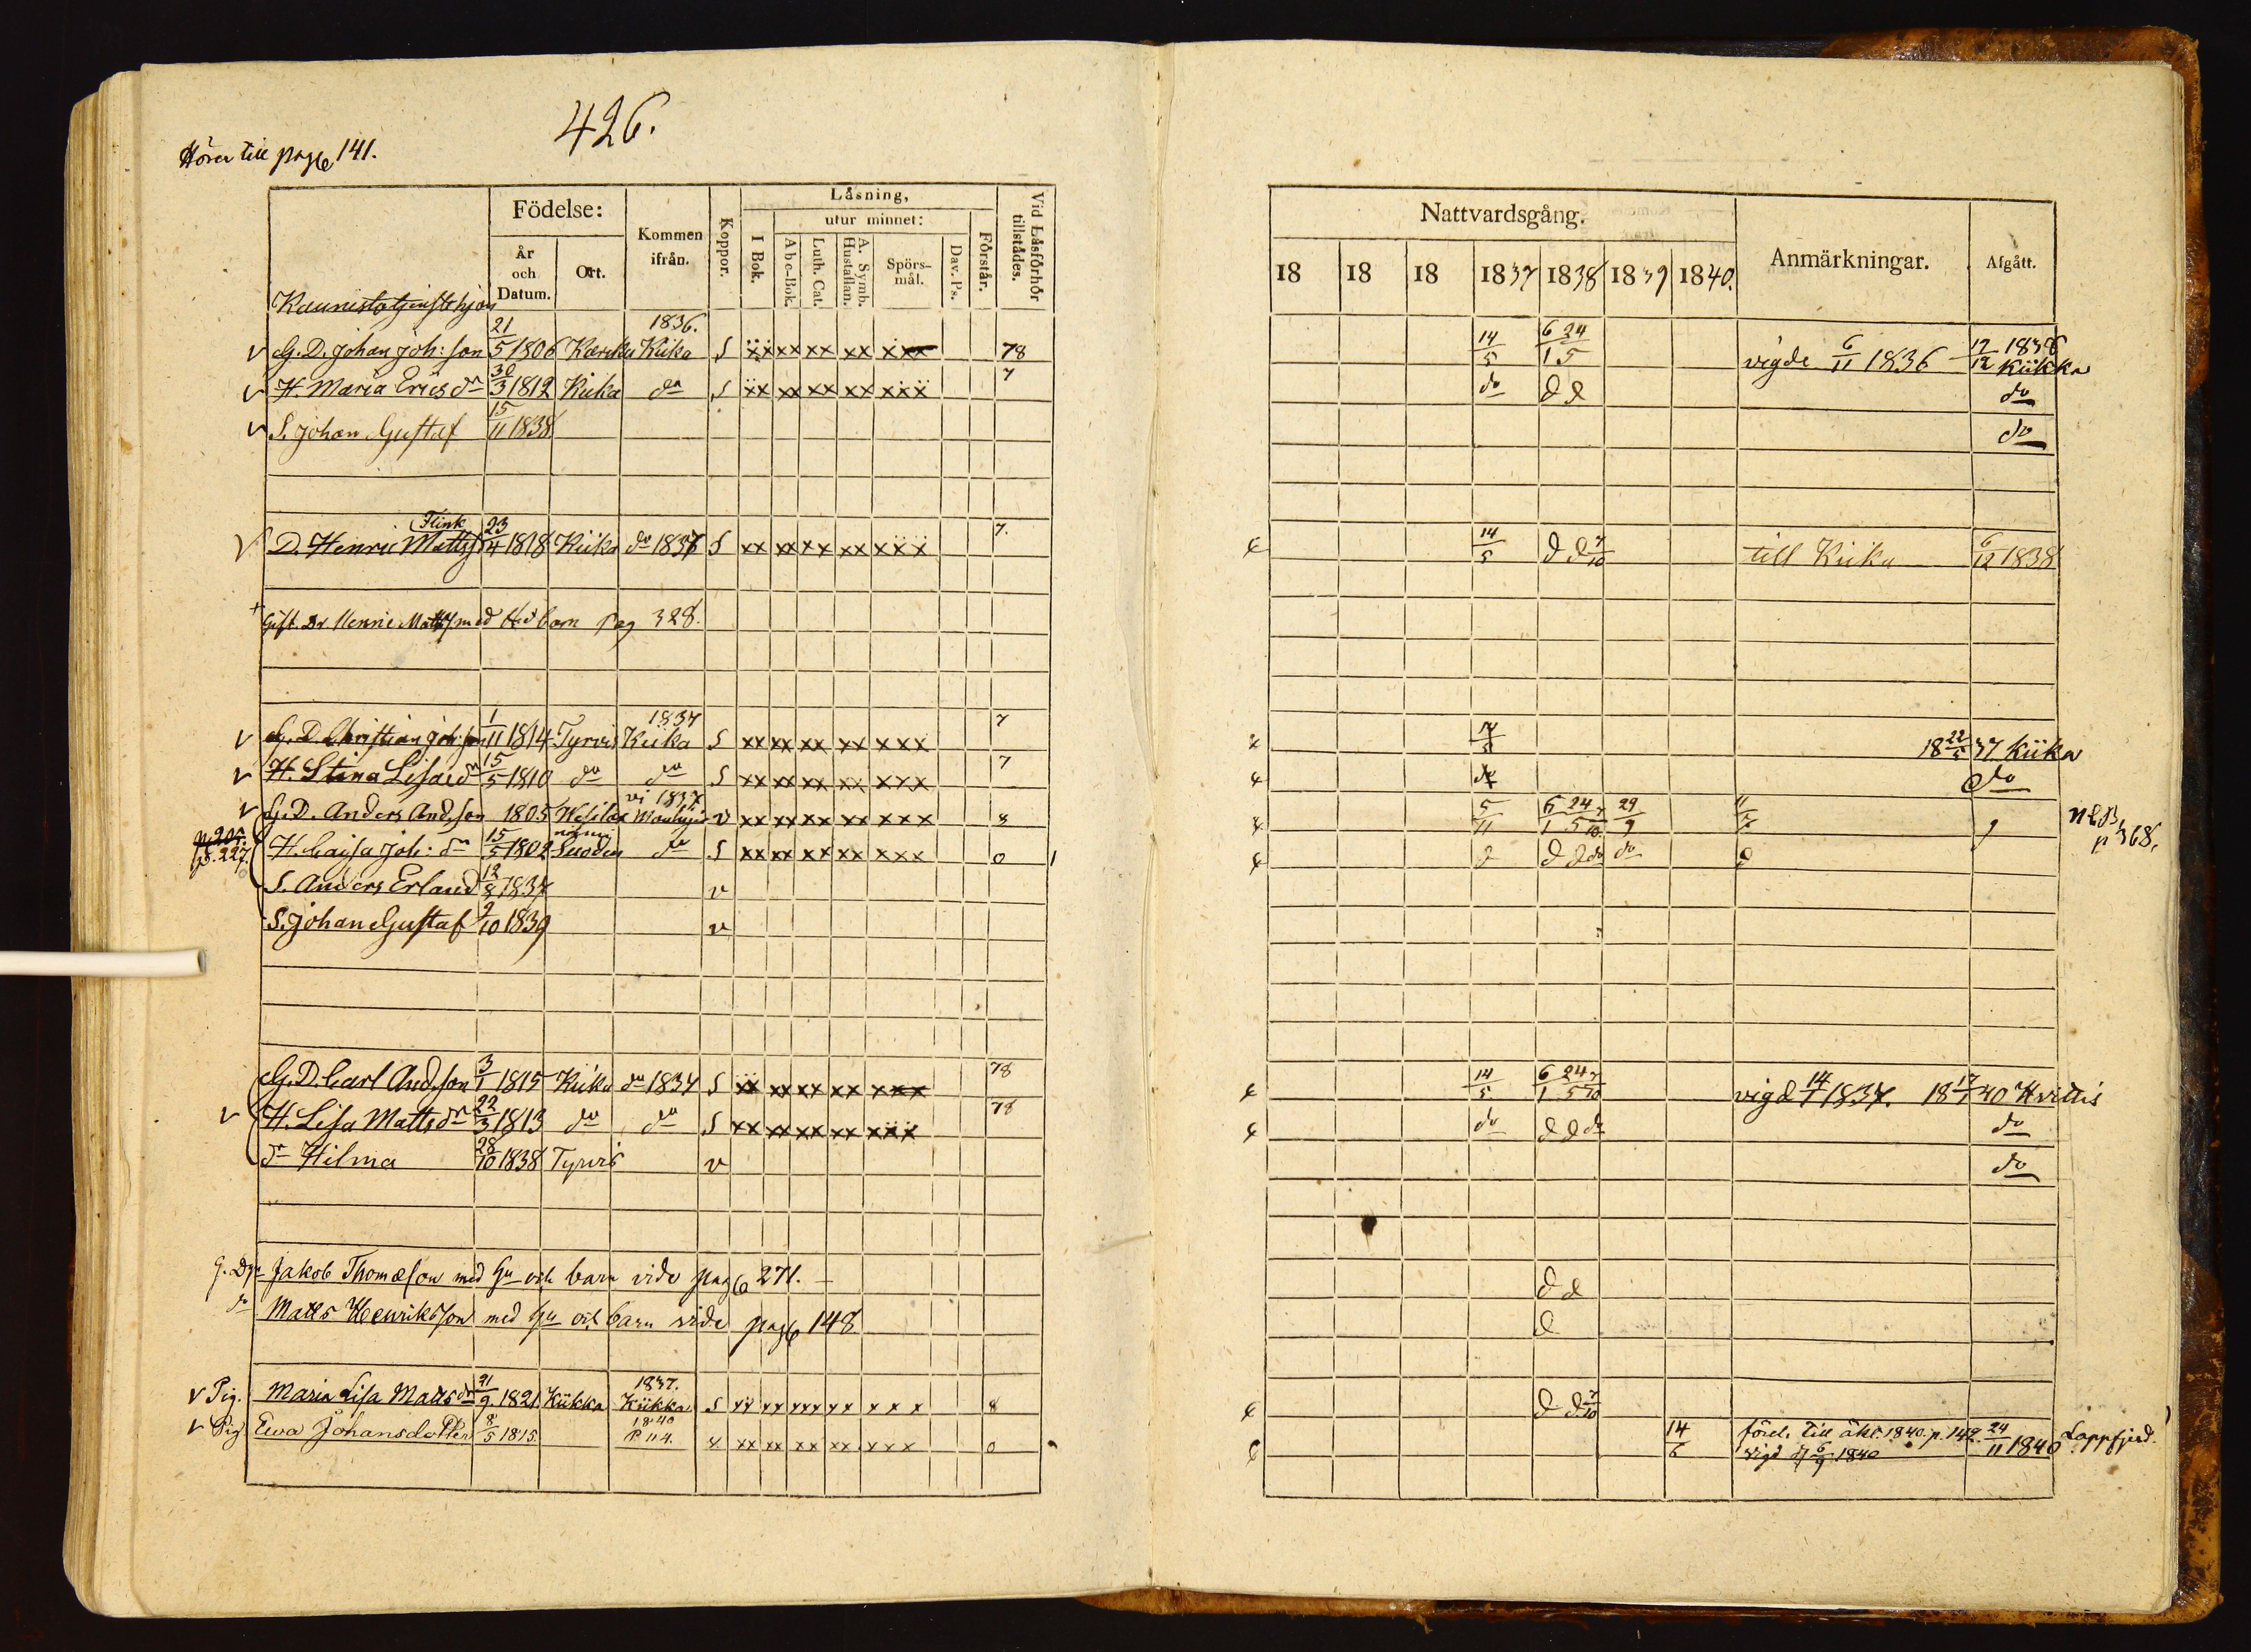 426.
Hörer till page 141.
Födelse:
År och Datum.
Ort.
Kommen ifrån.
Koppor.
Läsning,
utur minnet:
I Bok.
Abc-Bok.
Luth. Cat.
A. Symb. Hustaflan.
Spörsmål.
Dav. Ps.
Förstår.
Vid Läsförhör tillstådes.
Nattvardsgång.
18 18 18 1837 1838 1839 1840.
Anmärkningar.
Afgått.
1836.
G. D. Johan Joh: son 21/5 1806 Karcku Kiika S xx xx xx xx xxx 78 14/5 6/1 24/5 vigde 6/11 1836 12/12 1838 Kiikka
H. Maria Erics dr 30/3 1812 Kiika do S xx xx xx xx xxx 7 do d d do
S. Johan Gustaf 15/11 1838 do
Flink
D. Henric Mattss 23/4 1818 Kiika do 1837 S xx xx xx xx xxx 7. 14/5 d d 7/10 till Kiika 6/12 1838
Gift. Dr Henric Matts med H. o barn pag 328.
1837
G. D. Christian Joh: son 1/11 1814 Tyrvis Kiika S xx xx xx xx xxx 7 14/5 18 22/5 37 Kiika
H. Stina Lisa dr 15/5 1810 do do S xx xx xx xx xxx 7 do do
1837
G. D. Anders And. son 1805 v xx xx xx xx xxx 8 5/11 6/1 24/5 7/10 29/9
p. 368.
p. 205.
p. 227.
H. Caisa Joh: dr 15/5 1802 do S xx xx xx xx xxx 0 d d d do do
S. Anders Erland 12/8 1837 v
S. Johan Gustaf 9/10 1839 v
G. D. Carl And. son 3/1 1815 Kiika do 1834 S xx xx xx xx xxx 78 14/5 6/1 24/5 7/10 vigd 14/1 1837. 18 17/1 40 Hvittis
H. Lisa Matts dr 22/3 1813 do do S xx xx xx xx xxx 78 do d d do do
dr Hilma 28/10 1838 Tyrvis v do
G. Dr Jakob Thomæson med Hu och barn vide page 271. d d
dr Matts Henriksson med Hu och barn vide page 148 d
1837.
Pig. Maria Lisa Matts dr 21/9 1821 Kiikka Kiikka S xx xx xxx xx xxx 8 d d 7/10
1840
Pig Ewa Johansdotter 8/5 1815. P. 114. xx xx xx xx xxx 0 14/6 förel. till äkt. 1840. p. 142. 24/11 1840 Lappfjerd.
vigd d 6/9 1840